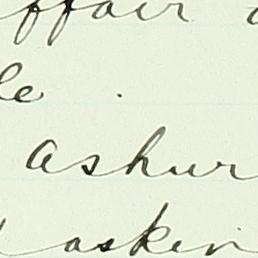 affair
le
Ashur
askin